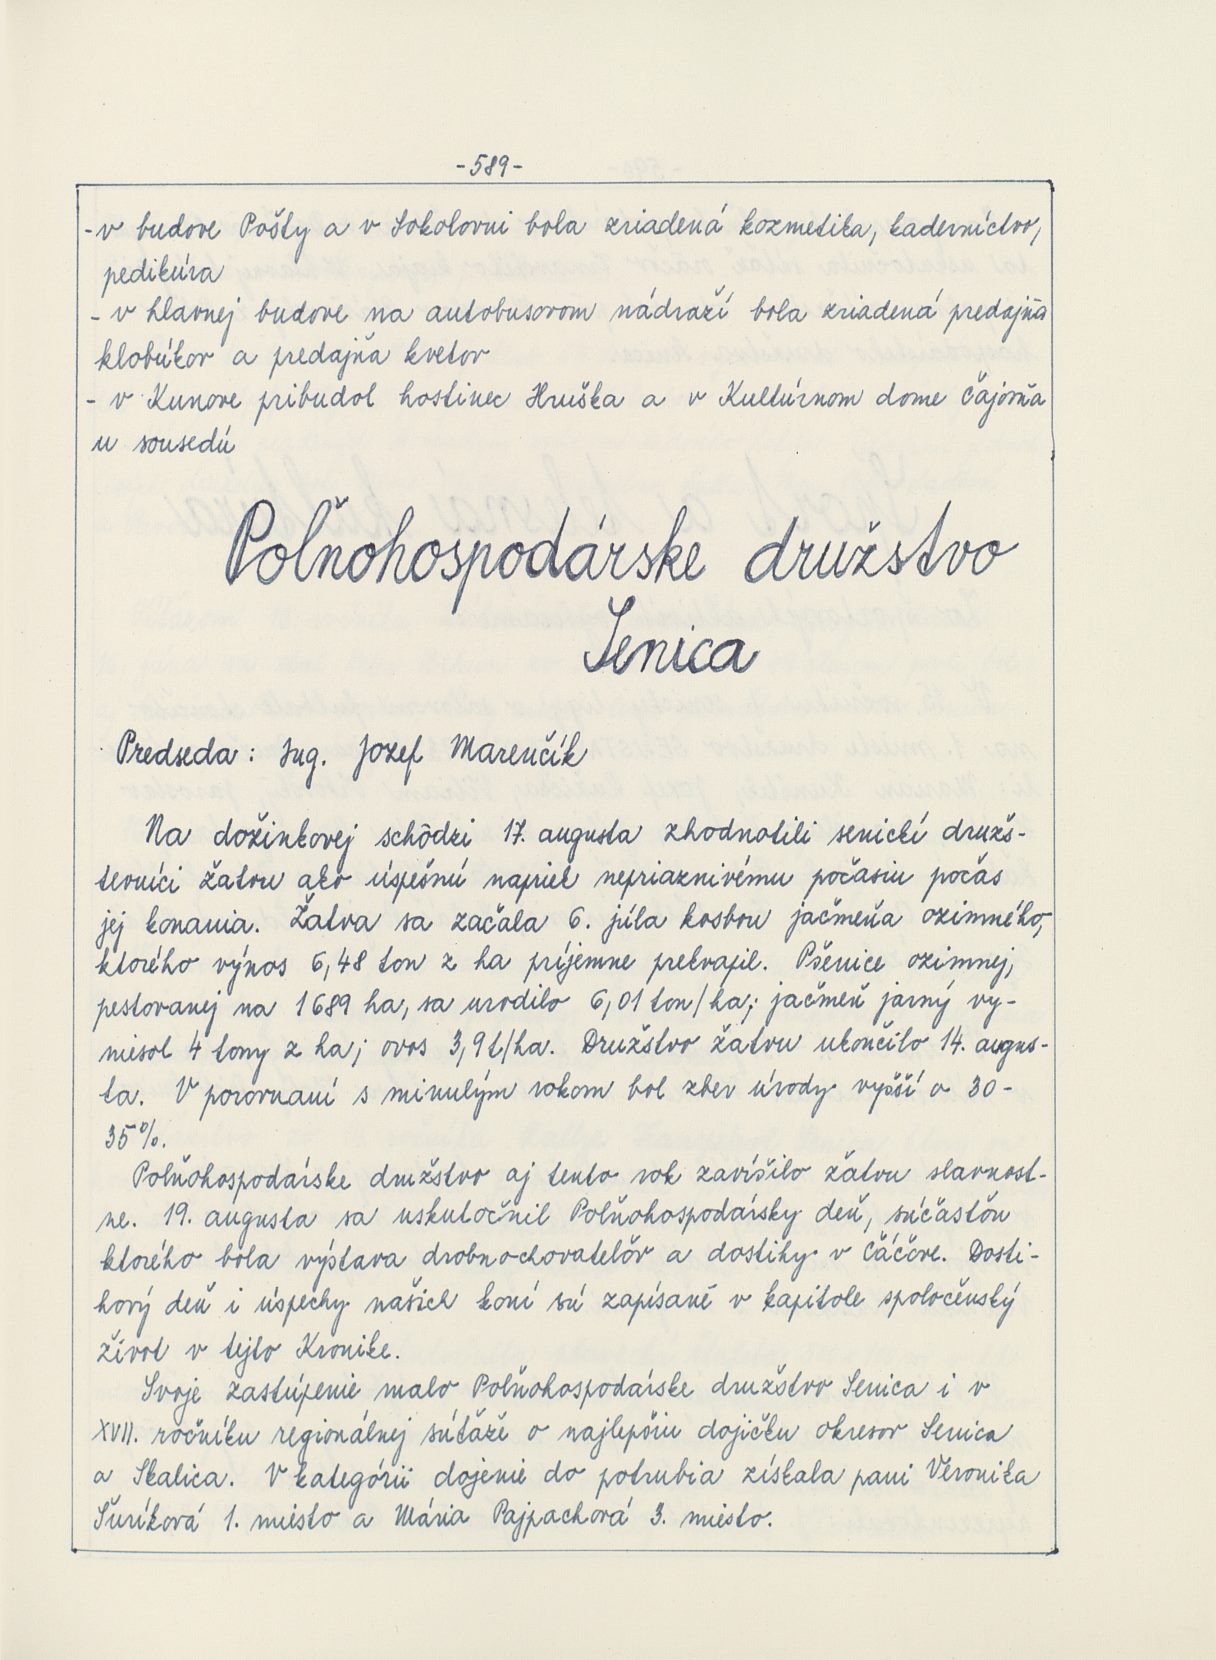 -589-
- v budove Pošty a v Sokolovni bola zriadená kozmetika, kaderníctvo,
pedikúra
- v hlavnej budove na autobusovom nádraží bola zriadená predajňa
klobúkov a predajňa kvetov
- v Kunove pribudol hostinec Hruška a v Kultúrnom dome Čajovňa
u sousedú
Poľnohospodárske družstvo
Senica
Predseda: Ing. Jozef Marenčík
Na dožinkovej schôdzi 17. augusta zhodnotili senickí družš-
tevníci žatvu ako úspešnú napriek nepriaznivému počasiu počas
jej konania. Žatva sa začala 6. júla kosbou jačmeňa ozimného,
ktorého výnos 6,48 ton z ha príjemne prekvapil. Pšenice ozimnej,
pestovanej na 1689 ha, sa urodilo 6,01 ton/ha; jačmeň jarný vy-
niesol 4 tony z ha; ovos 3,9t/ha. Družstvo žatvu ukončilo 14. augus-
ta. V porovnaní s minulým rokom bol zber úrody vyšší o 30-
35%.
Poľnohospodárske družstvo aj tento rok zavŕšilo žatvu slavnost-
ne. 19. augusta sa uskutočnil Poľnohospodársky deň, súčasťou
ktorého bola výstava drobnochovateľov a dostihy v Čáčove. Dosti-
hový deň i úspechy našich koní sú zapísané v kapitole spoločenský
život v tejto Kronike.
Svoje zastúpenie malo Poľnohospodárske družstvo Senica i v
XVII. ročníku regionálnej súťaže o najlepšiu dojičku okresov Senica
a Skalica. V kategórii dojenie do potrubia získala pani Veronika
Šuríková 1. miesto a Mária Pajpachová 3. miesto.